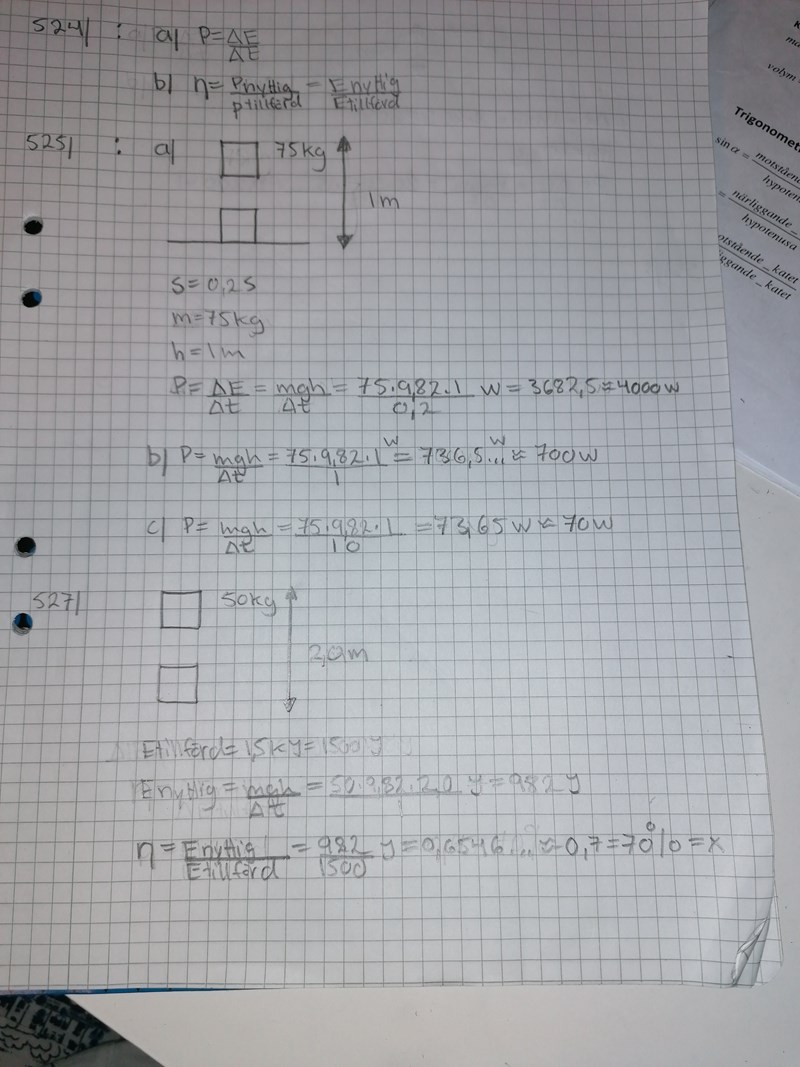 524/ : a) P = ΔE/Δt
b) η = Pnyttig/Ptillförd = Enyttig/Etillförd
525/ : a) 75kg
1m
S = 0,2s
m = 75kg
h = 1m
P = ΔE/Δt = mgh/Δt = 75·9,82·1/0,2 W = 3682,5 ≈ 4000W
b) P = mgh/Δt = 75·9,82·1/1 W = 736,5... W ≈ 700W
c) P = mgh/Δt = 75·9,82·1/10 = 73,65W ≈ 70W
527/ 50kg
2,0m
Etillförd = 1,5kJ = 1500J
Enyttig = mgh/Δt = 50·9,82·2,0 J = 982J
η = Enyttig/Etillförd = 982/1500 J = 0,6546... ≈ 0,7 = 70% = x
volym
Trigonomet
sin α = motstående_
hypoten
= närliggande_
hypotenusa
otstående_katet
iggande_katet